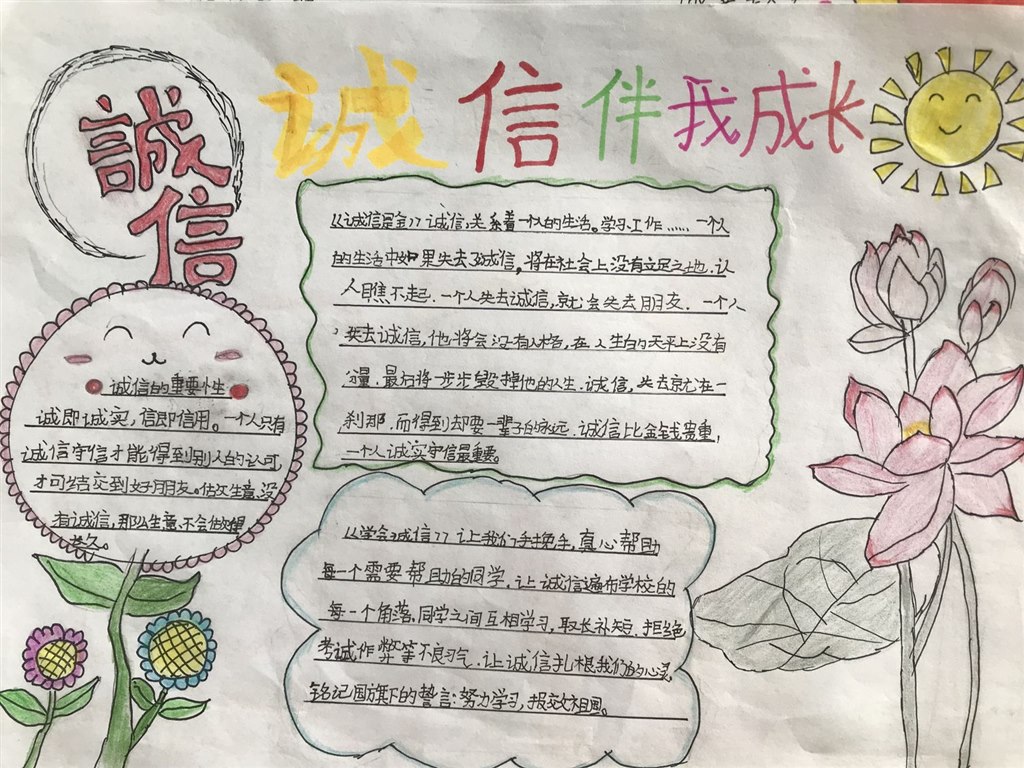 诚信伴我成长
誠
信
《诚信是金》诚信,关系着一个人的生活。学习.工作……一个人
的生活中如果失去了诚信,将在社会上没有立足之地.认
人瞧不起.一个人失去诚信,就会失去朋友.一个人
失去诚信,他将会没有人格,在人生的天平上没有
分量.最后将一步步毁掉他的人生.诚信,失去就在一
刹那.而得到却要一辈子的永远.诚信比金钱贵重,
一个人诚实守信最重要。
诚信的重要性
诚即诚实,信即信用。一个人只有
诚信守信才能得到别人的认可,
才可结交到好朋友。做生意,没
有诚信,那么生意不会做得
长久。
《学会诚信》让我们手挽手,真心帮助
每一个需要帮助的同学.让诚信遍布学校的
每一个角落.同学之间互相学习,取长补短.拒绝
考试作弊等不良习气.让诚信扎根我们的心灵,
铭记国旗下的誓言:努力学习,报效祖国。